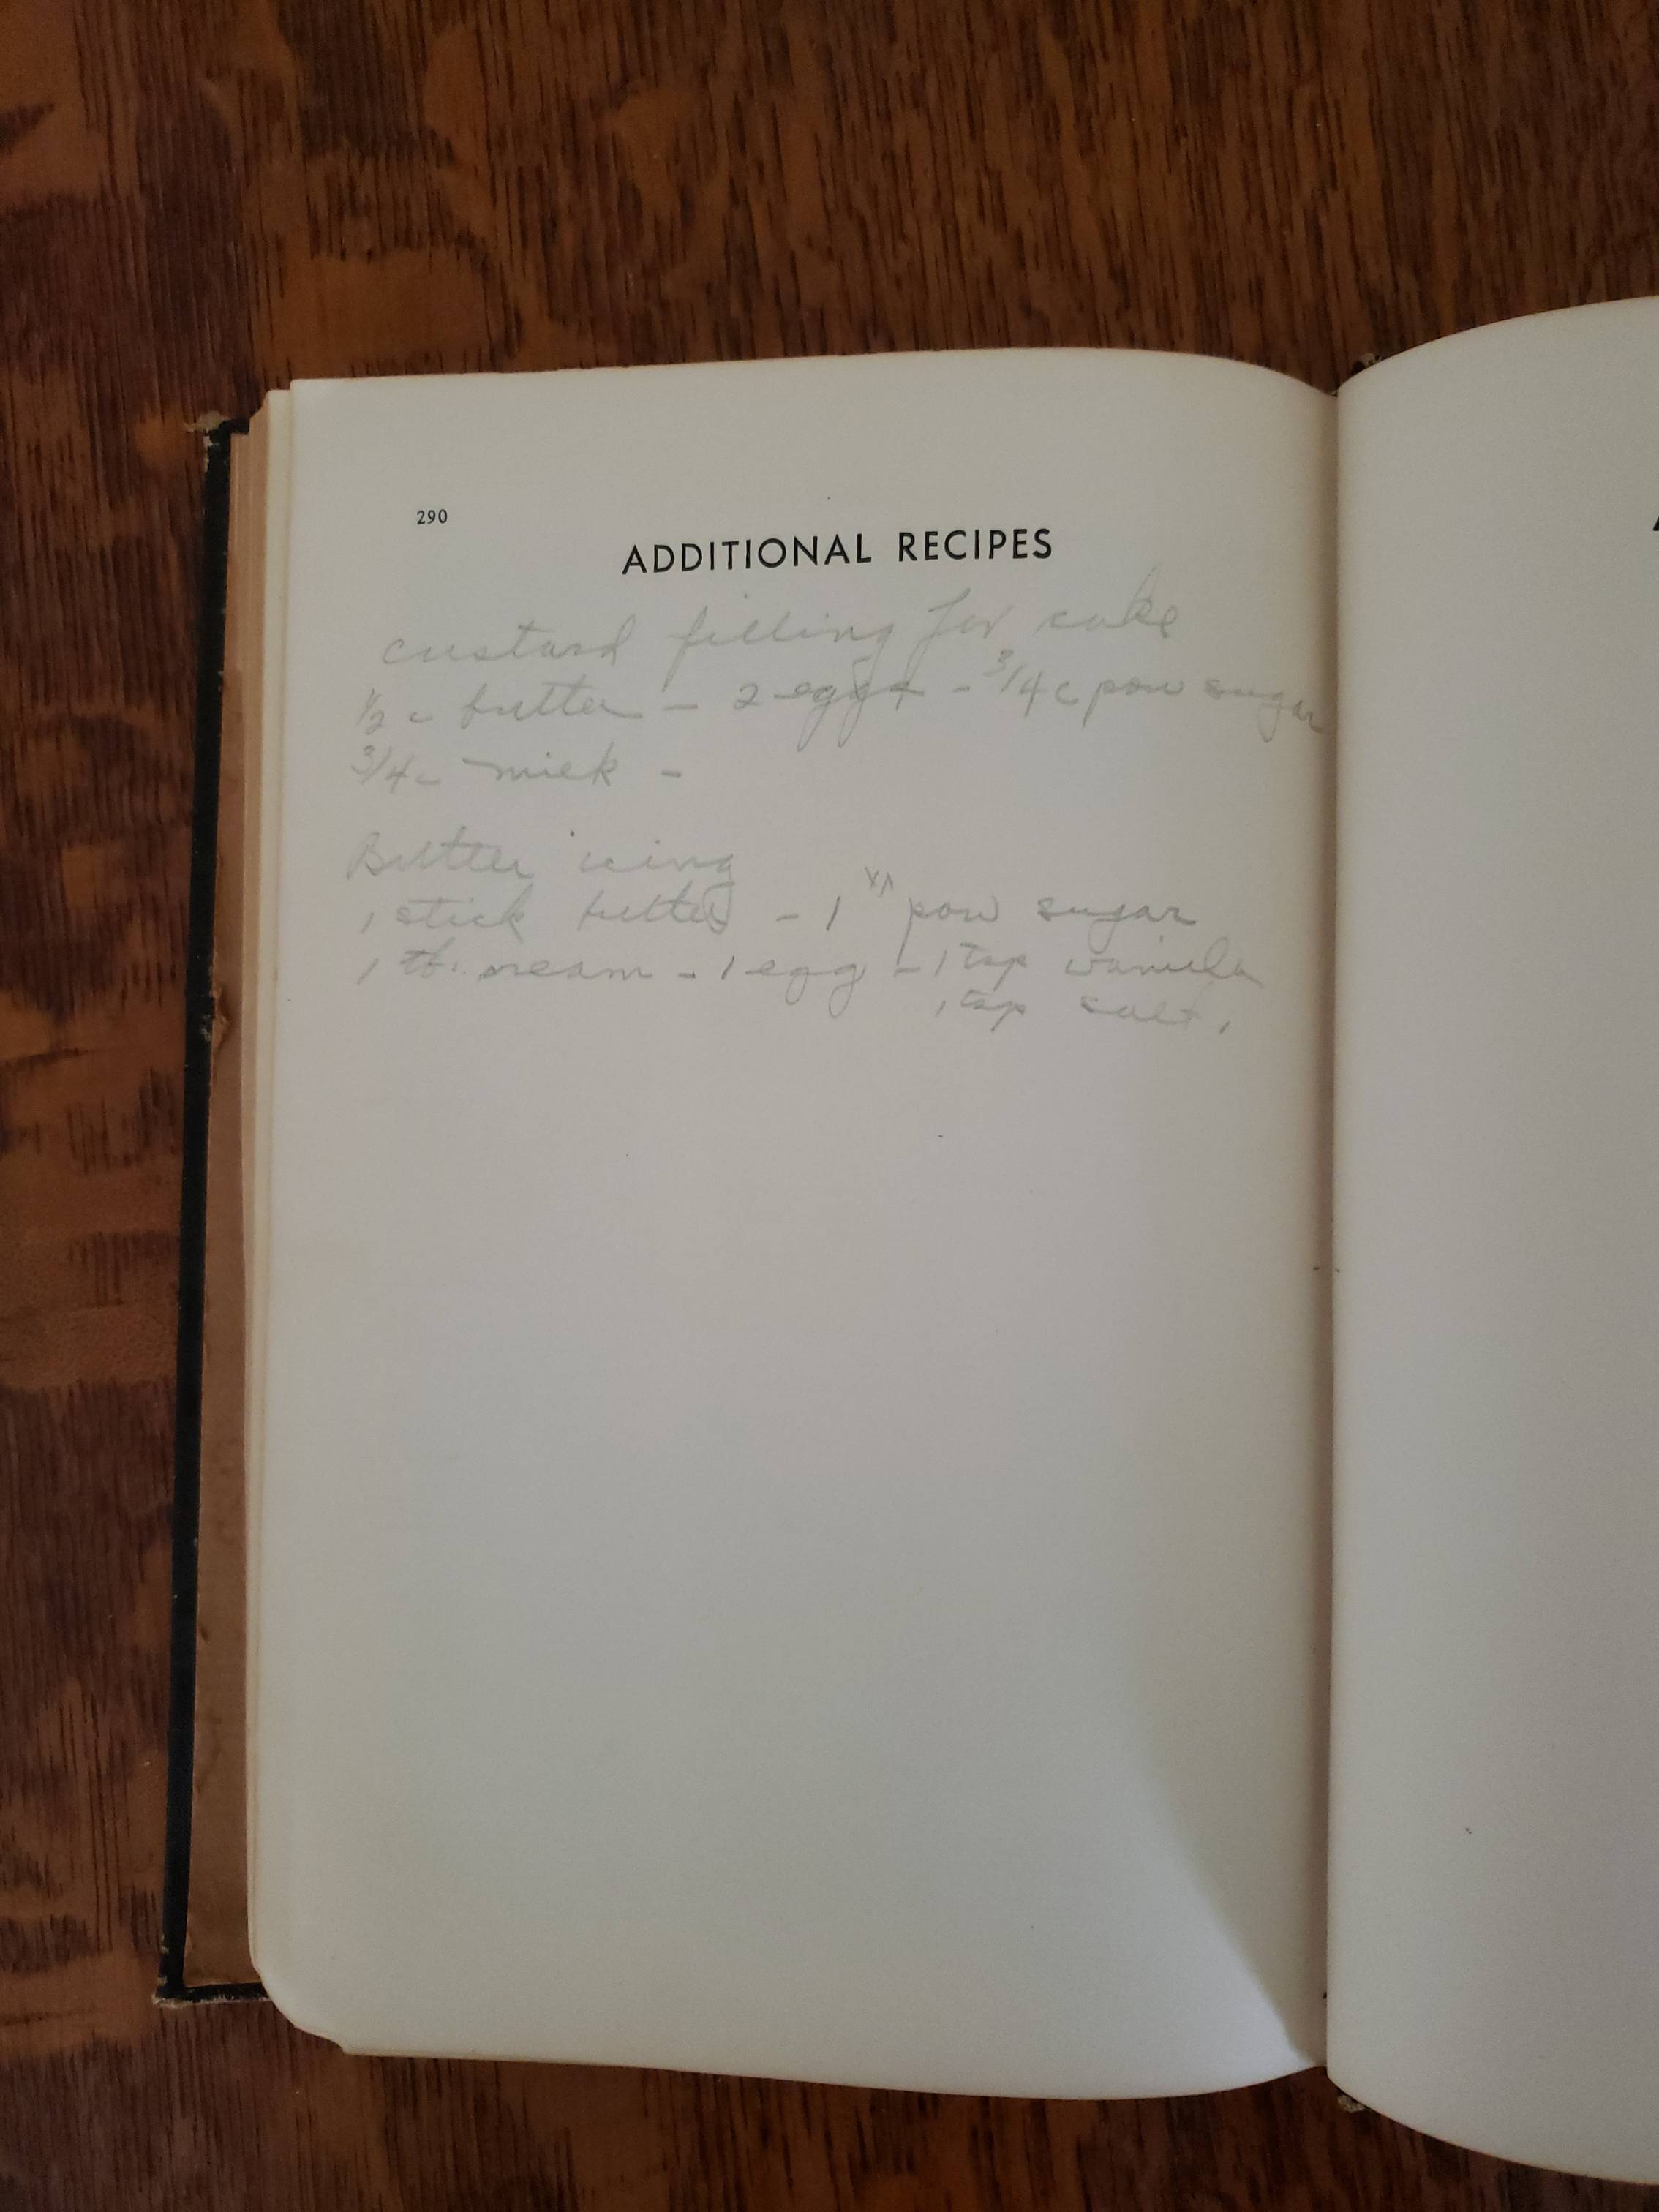 290
ADDITIONAL RECIPES
custard filling for cake
1/2 c butter - 2 eggs - 3/4 c pow sugar
3/4 c milk -
Butter icing
1 stick butter - 1 pow sugar
1 tb. cream - 1 egg - 1 tsp vanilla
1 tsp salt.